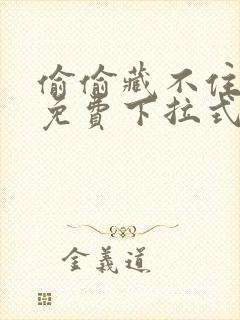 偷偷藏不住
免費下拉式
金義道